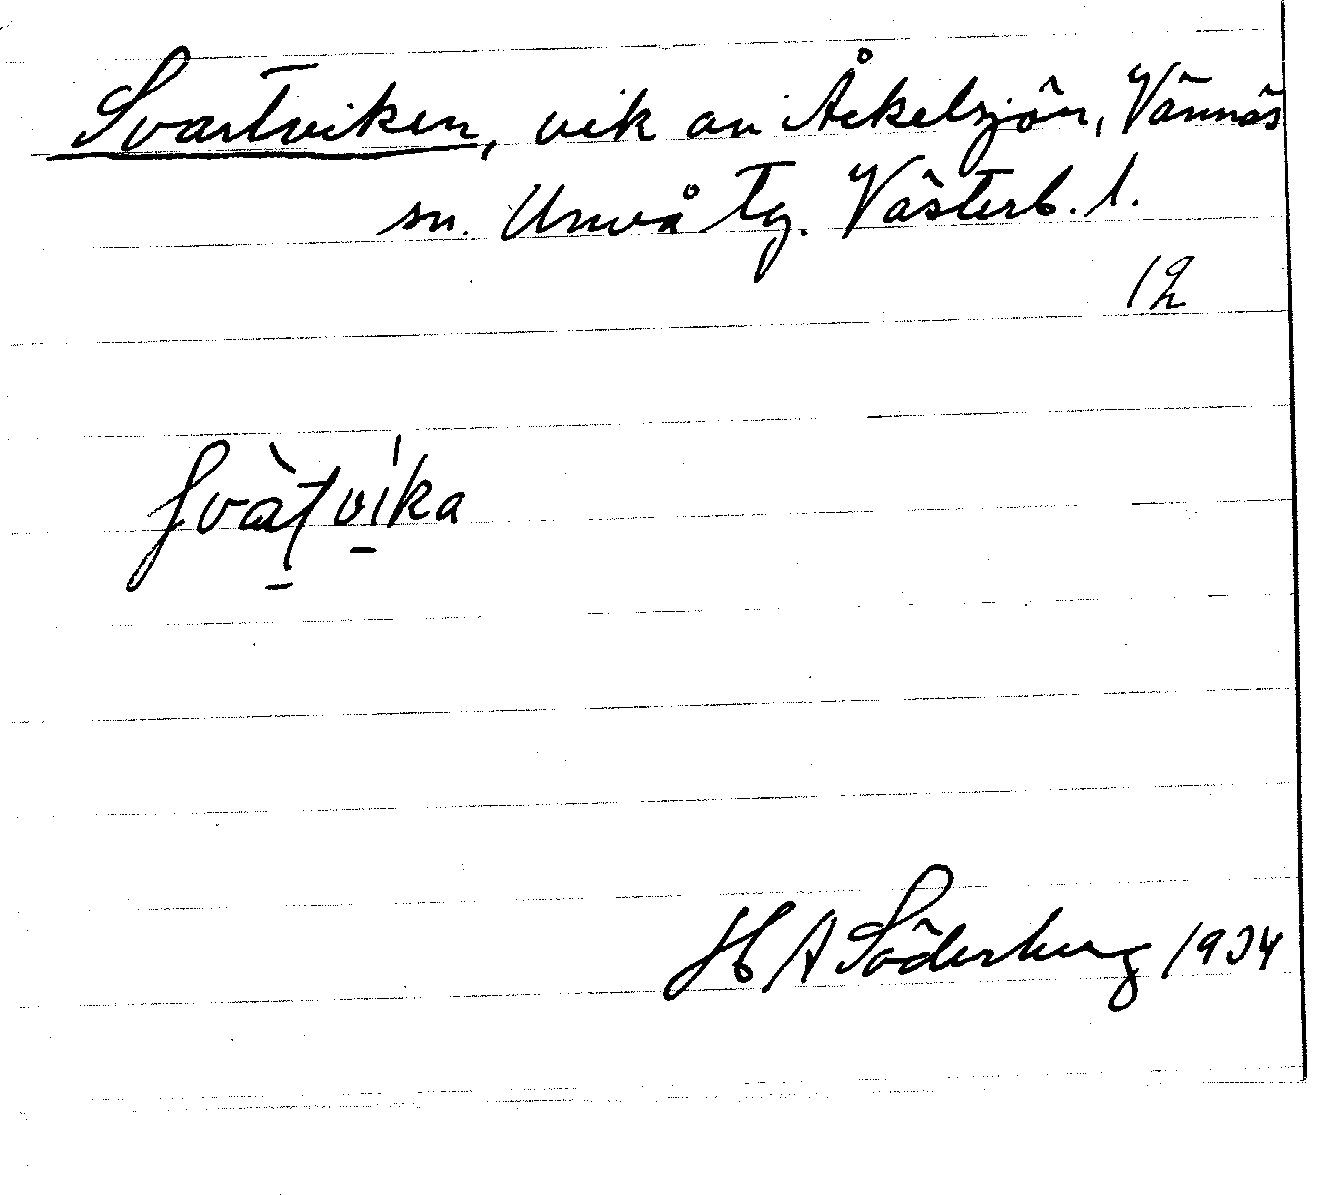 Svartviken, vik av Åckelsjön, Vännäs
sn. Umeå tg. Västerb. l.
12
svàtvika
H A Söderberg 1934